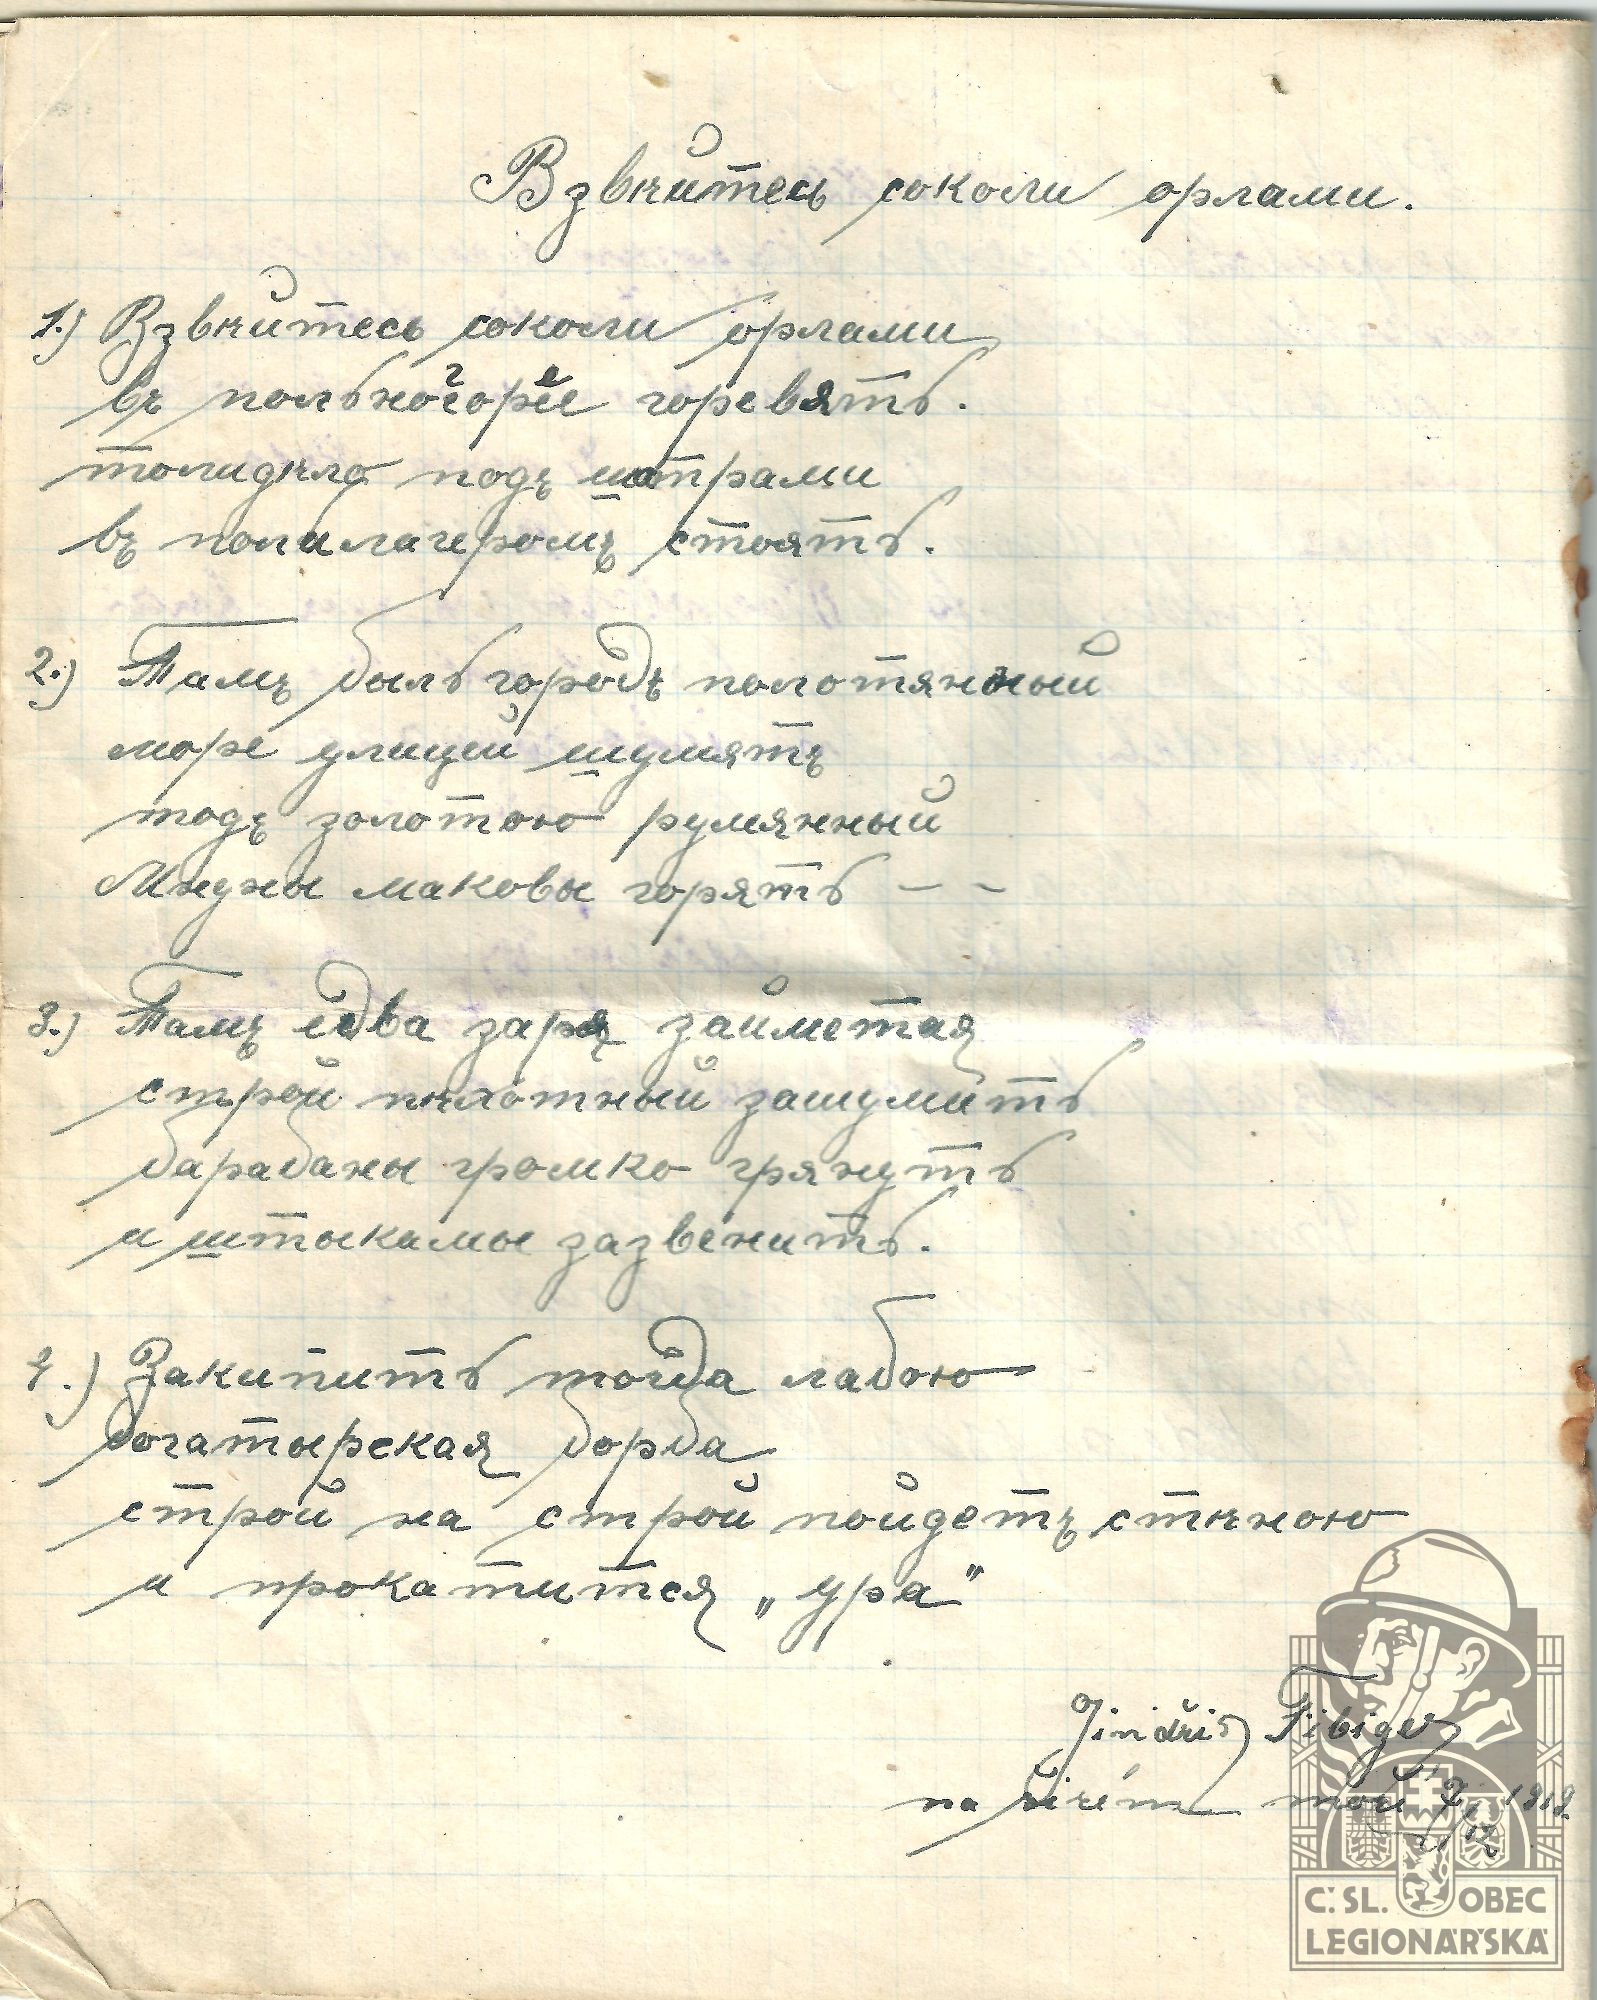 Взвѣйтесь соколи орлами.
1.) Взвѣйтесь соколи орлами
въ польногорѣе горевять.
толидѣло подъ шатрами
въ полилагеромъ стоять.
2.) Тамъ быль городъ полотянный
море улицей шумятъ
подъ золотою румянный
маковы горять - -
3.) Тамъ едва заря займетая
строй пѣлотный зашумить
барабаны громко грянуть
и штыкамы зазвенить.
4.) Закипить тогда лабою
богатырская борба
строй на строй пойдетъ стѣною
и прокатится „ура"
Jindřich Fibiger
na širém moři 1919
12
Č. SL. OBEC
LEGIONÁŘSKÁ